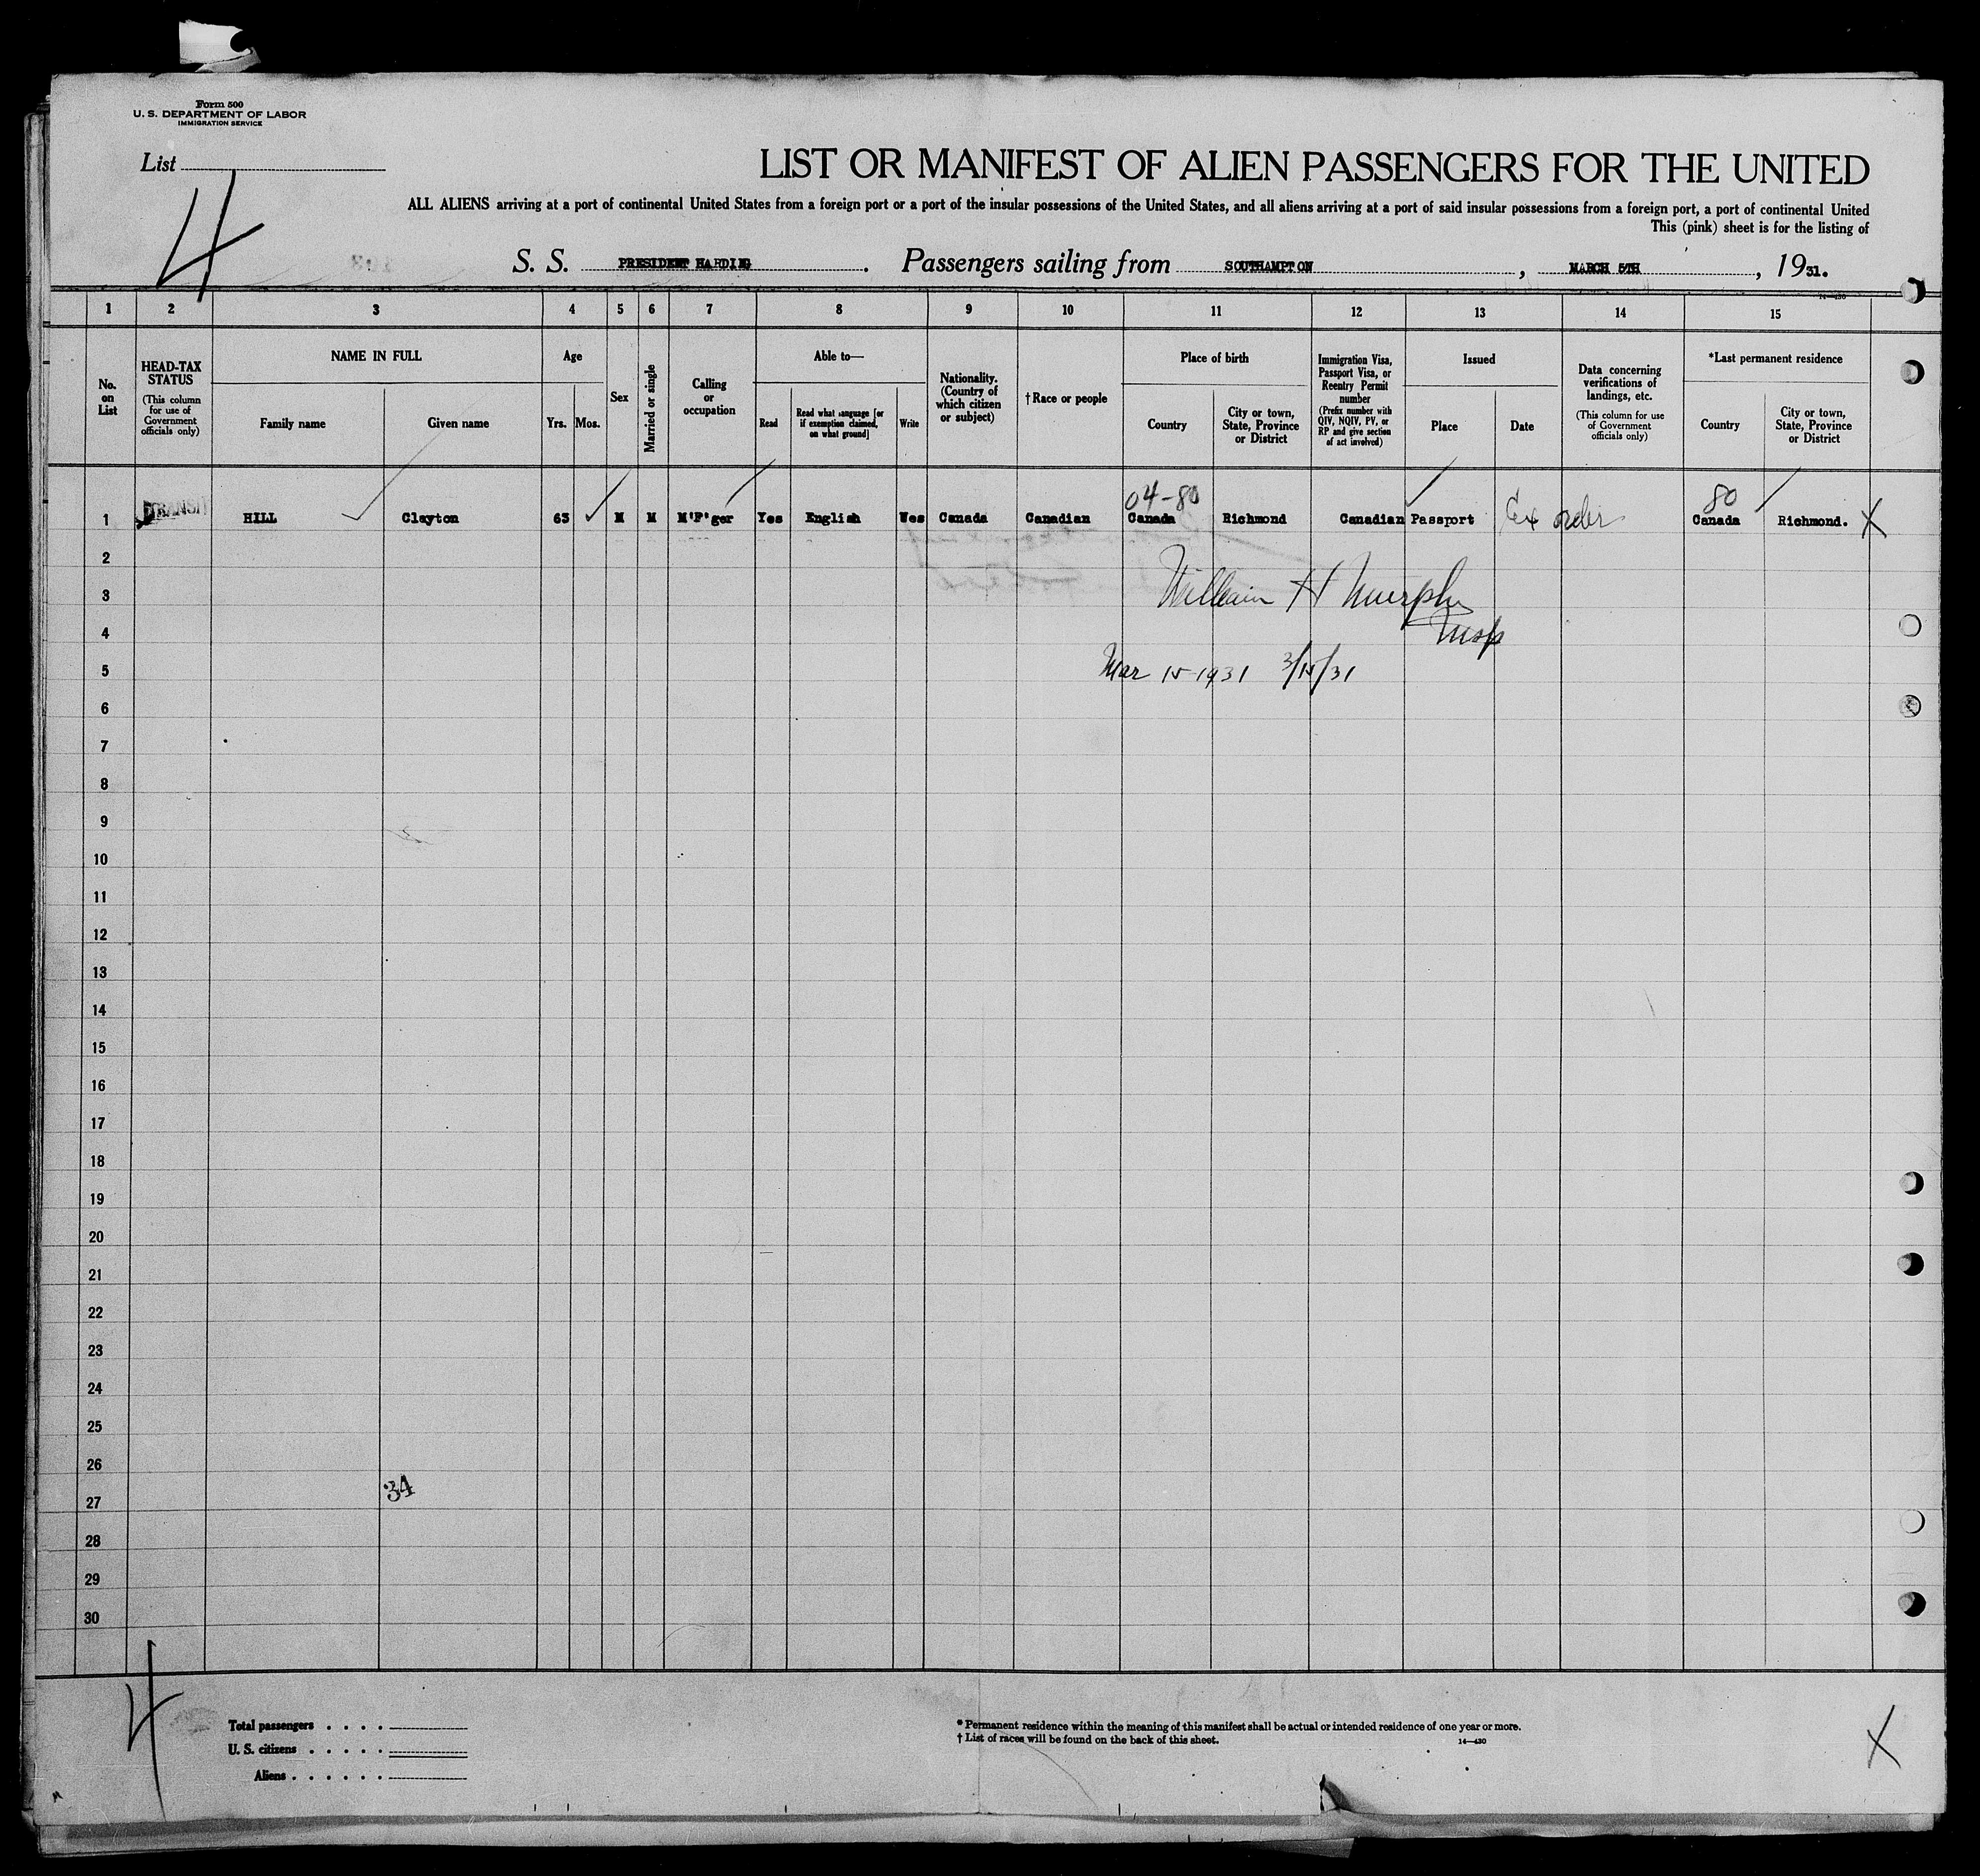 Form 500
U. S. DEPARTMENT OF LABOR
IMMIGRATION SERVICE
List
4
LIST OR MANIFEST OF ALIEN PASSENGERS FOR THE UNITED
ALL ALIENS arriving at a port of continental United States from a foreign port or a port of the insular possessions of the United States, and all aliens arriving at a port of said insular possessions from a foreign port, a port of continental United
This (pink) sheet is for the listing of
S. S. PRESIDENT HARDING. Passengers sailing from SOUTHAMPTON, MARCH 5TH, 1931.
14—430
1 2 3 4 5 6 7 8 9 10 11 12 13 14 15
No. on List
HEAD-TAX STATUS
(This column for use of Government officials only)
NAME IN FULL
Family name
Given name
Age
Yrs. Mos.
Sex
Married or single
Calling or occupation
Able to—
Read
Read what language [or if exemption claimed, on what ground]
Write
Nationality. (Country of which citizen or subject)
† Race or people
Place of birth
Country
City or town, State, Province or District
Immigration Visa, Passport Visa, or Reentry Permit number
(Prefix number with QIV, NQIV, PV, or RP and give section of act involved)
Issued
Place
Date
Data concerning verifications of landings, etc.
(This column for use of Government officials only)
*Last permanent residence
Country
City or town, State, Province or District
04-80
80
1 TRANSIT HILL Clayton 63 M M M'F'ger Yes English Wes Canada Canadian Canada Richmond Canadian Passport Ex order Canada Richmond. X
2
William H Murphy
3
Insp
4
Mar 15 1931 3/15/31
5
6
7
8
9
10
11
12
13
14
15
16
17
18
19
20
21
22
23
24
25
26
34
27
28
29
30
4
Total passengers . . . .
U. S. citizens . . . . .
Aliens . . . . . .
* Permanent residence within the meaning of this manifest shall be actual or intended residence of one year or more.
† List of races will be found on the back of this sheet.
14—430
X